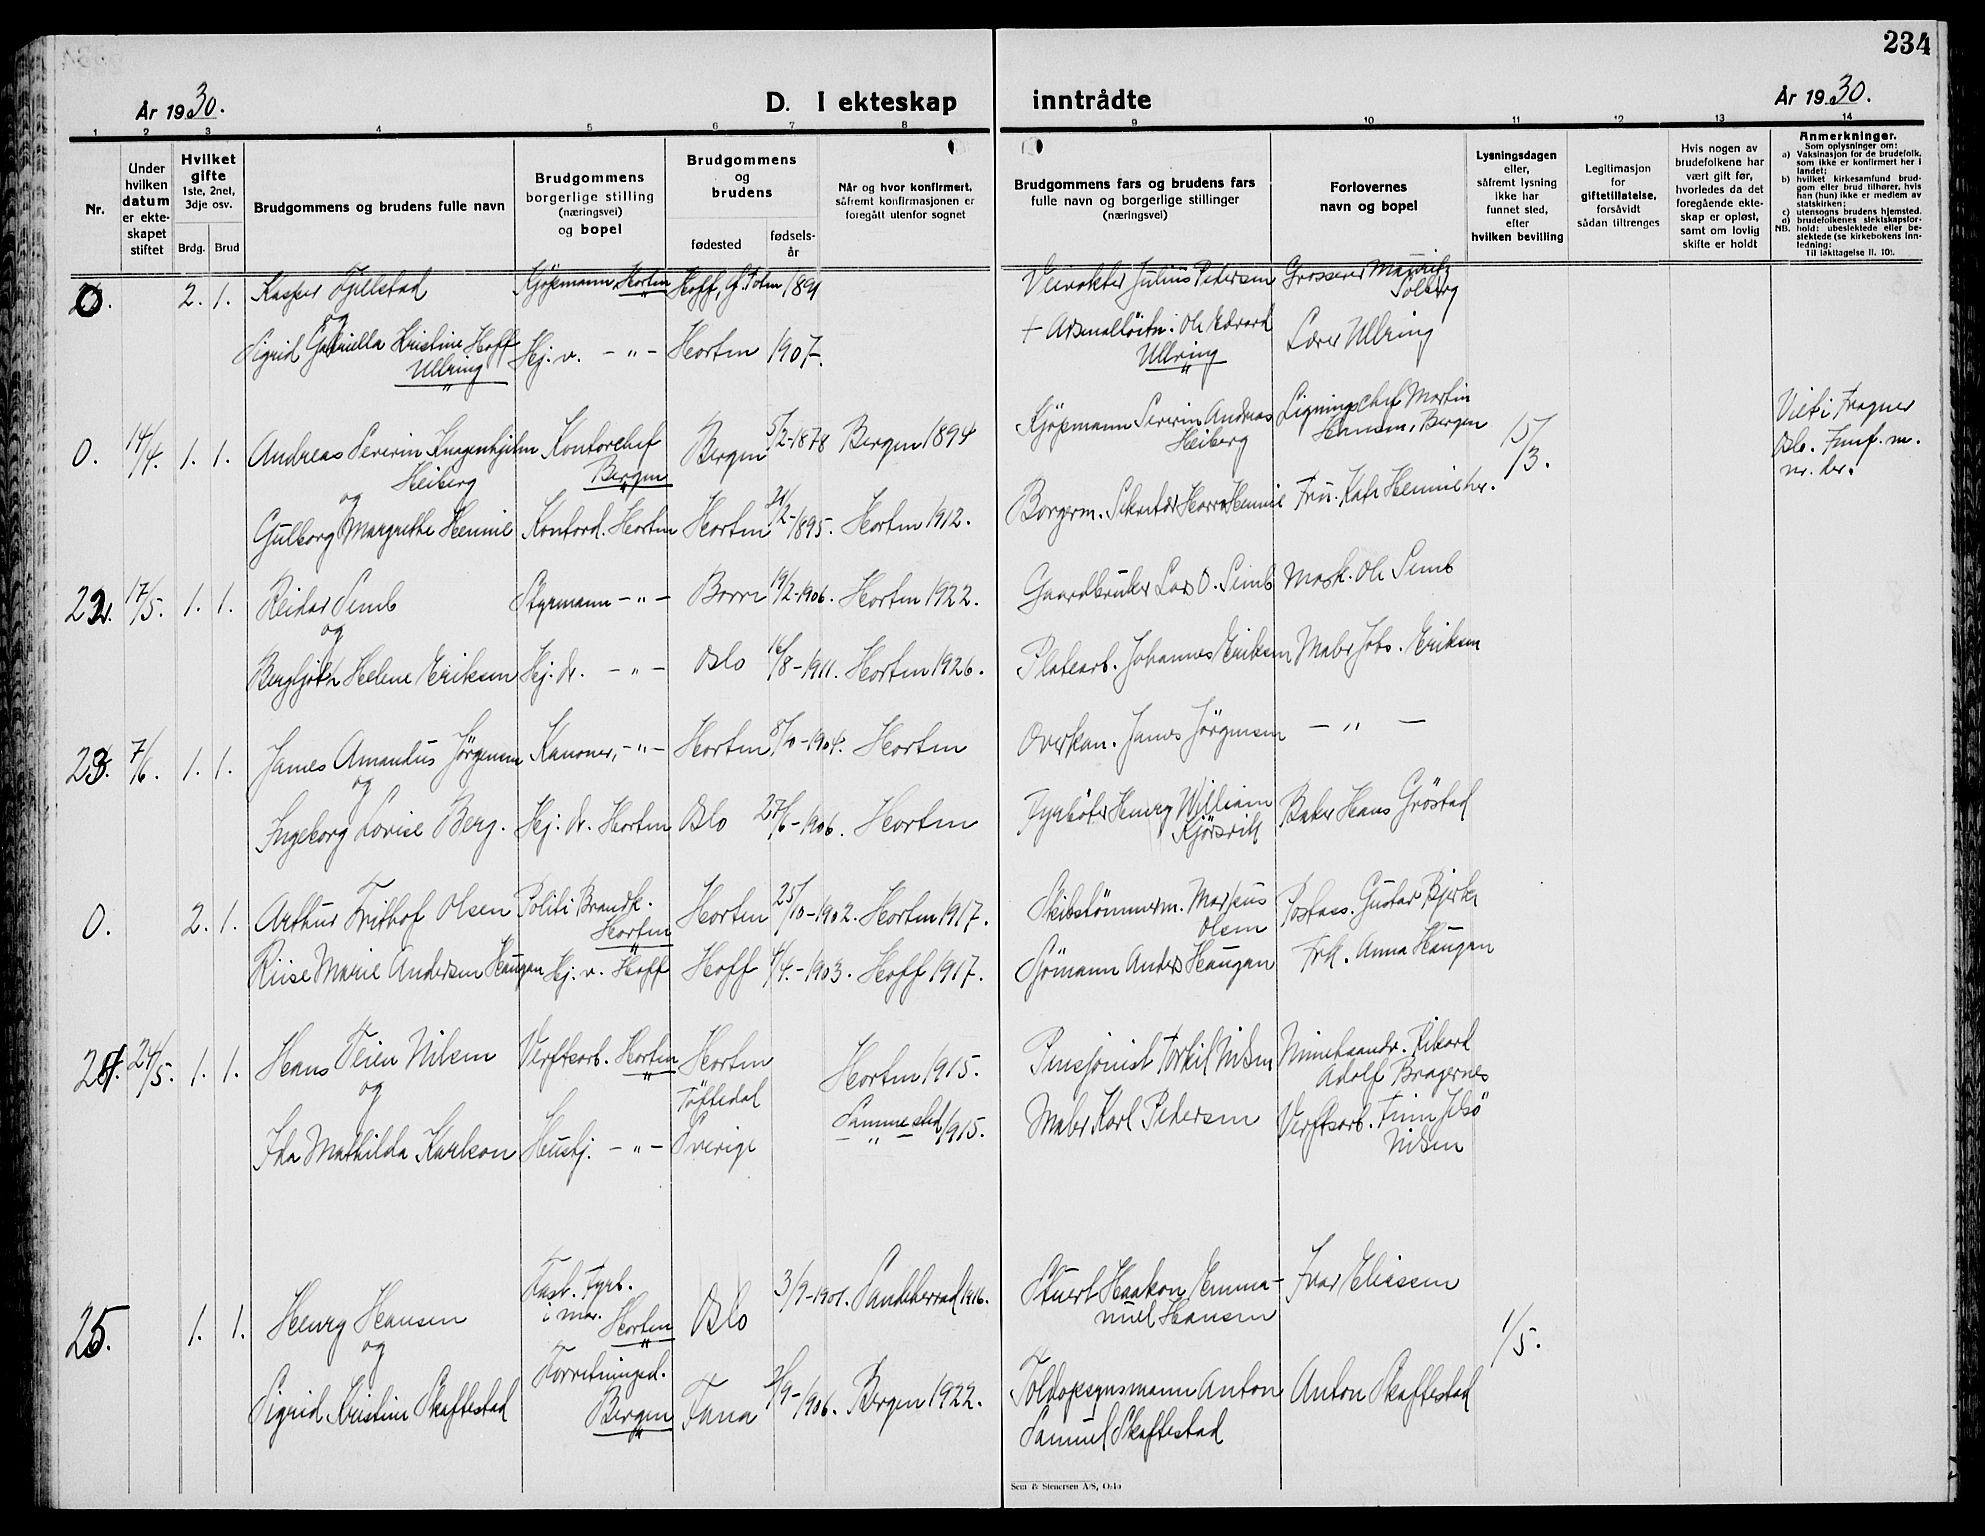 234
År 1930.
D. I ekteskap inntrådte
År 1930.
1 2 3 4 5 6 7 8 9 10 11 12 13 14
Nr.
Under
hvilken
datum
er ekte-
skapet
stiftet
Hvilket
gifte
1ste, 2net,
3dje osv.
Brdg. Brud
Brudgommens og brudens fulle navn
Brudgommens
borgerlige stilling
(næringsvei)
og bopel
Brudgommens
og
brudens
fødested
fødsels-
år
Når og hvor konfirmert,
såfremt konfirmasjonen er
foregått utenfor sognet
Brudgommens fars og brudens fars
fulle navn og borgerlige stillinger
(næringsvei)
Forlovernes
navn og bopel
Lysningsdagen
eller,
såfremt lysning
ikke har
funnet sted,
efter
hvilken bevilling
Legitimasjon
for
giftetillatelse,
forsåvidt
sådan tiltrenges
Hvis nogen av
brudefolkene har
vært gift før,
hvorledes da det
foregående ekte-
skap er opløst,
samt om lovlig
skifte er holdt
Anmerkninger.
Som oplysninger om:
a) Vaksinasjon for de brudefolk,
som ikke er konfirmert her i
landet;
b) hvilket kirkesamfund brud-
gom eller brud tilhører, hvis
han (hun) ikke er medlem av
statskirken;
c) utensogns brudens hjemsted.
d) brudefolkenes slektskapsfor-
hold: ubeslektede eller be-
slektede (se kirkebokens inn-
ledning:
NB.
Til iakttagelse II. 10).
0. 2. 1. Kasper Fjellstad Kjøpmann Horten Hoff, Ø. Toten 1891 Veivokter Julius Pedersen Grosserer Mauritz
Solberg
og
Sigrid Gabriella Kristine Hoff Hj. v. - " - Horten 1907. + Arsenalløitn. Ole Edvard Lærer Ullring
Ullring Ullring
0. 14/4. 1. 1. Andreas Severin Knagenhjelm Kontorchef Bergen 5/2-1878 Bergen 1894 Kjøpmann Severin Andreas Ligningschef Martin 15/3. Viet i Frogner
Heiberg Bergen Heiberg Hansen, Bergen Oslo.
og
Gulborg Margrethe Hennie Kontord. Horten Horten 21/2-1895. Horten 1912. Borgerm. Sekretær Hennie Fru
22. 17/5. 1. 1. Reidar Semb Styrmann - " - Borre 19/2-1906. Horten 1922. Gaardbruker Lars O. Semb Mask. Ole Semb
og
Bergljot Helene Eriksen Hj. d. - " - Oslo 16/8-1911. Horten 1926. Platearb. Johannes Eriksen Maler Johs. Eriksen
23. 7/6. 1. 1. James Amandus Jørgensen Kanoner, - " - Horten 8/10-1904. Horten Overkan. James Jörgensen - " -
og
Ingeborg Lovise Berg. Hj. d. Horten Oslo 27/6-1906. Horten Fyrböter Henry William Baker Hans Gröstad
Kjörsvik
0. 2. 1. Arthur Frithof Olsen Politi Brandk. Horten 25/10-1902. Horten 1917. Skibstömmerm. Markus Postass. Gustav Bjerke
Horten Olsen
Riise Marie Andersen Haugan Hj. v. Hoff Hoff /4.-1903. Hoff 1917. Sjömann Anders Haugan Frk. Anna Haugan
24. 24/5. 1. 1. Hans Teien Nilsen Verftsarb. Horten Horten Horten 1915. Pensjonist Torkil Nilsen Rikard
Adolf Bragernes
og Töftedal Samme sted 1915.
Ida Mathilda Karlson Hushj. - " - Sverige Maler Karl Pedersen Verftsarb. Finn
Nilsen
25. 1. 1. Henry Hansen Fast. Fyrb. Oslo 3/9-1901. Sandeherred 1916. Stuert Haakon Emma- Ivar Eliassen 1/5.
i mar. Horten nuel Hansen
og
Sigrid Kristine Skaftestad Forretningsd. Fana /9-1906. Bergen 1922. Toldopsynsmann Anton Anton Skaftestad
Bergen Samuel Skaftestad
Sem & Stenersen A/S, Oslo